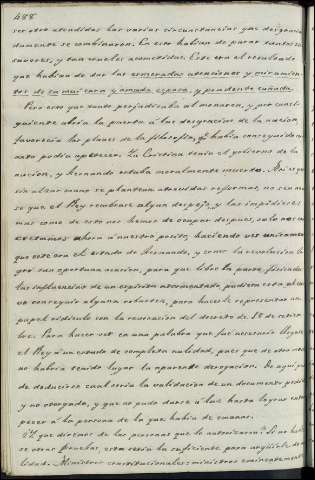 488
ser otra atendidas las varias circunstancias que desgracia
damente se combinaron. En esto habian de parar tantos
favores, y tan crueles acometidas. Este era el resultado
que habian de dar las esmeradas atenciones y miramien
tos de su muy cara y amada esposa, y prudente cuñada.
Pero esto que tanto perjudicaba al monarca, y por consi-
guiente abria la puerta a las desgracias de la nacion,
favorecia los planes de la filosofia, qe habia conseguido
dato podia apetecer. La Cristina tenia el gobierno de la
nacion, y Fernando estaba moralmente muerto. Asi es que
sin alzar mano se plantean atrevidas reformas, no sea
se que el Rey recobrase algun despejo, y las impidiese;
mas como de esto nos hemos de ocupar despues, solo nos
ahora a nuestro proposito, haciendo ver unicamente
que este era el estado de Fernando, y como la revolucion
gró tan oportuna ocasion, para que libre la parte fisica de
las influencias de un espiritu atormentado, pudiera esta
conseguir alguna robustez, para hacerle representar un
papel ridiculo con la revocacion del decreto de 18 de setiem
bre. Para hacer ver en una palabra que fue necesario llegase
el Rey a un estado de completa nulidad, pues que de otro modo
no habria tenido lugar la aparente derogacion. De aqui pue
de deducirse cual seria la validacion de un documento
y no otorgado, y que no pudo darse a luz hasta lograr entor
pecer a la persona de la que habia de emanar.
¿Y que diremos de las personas que lo autorizaron? Si no hubie
se otras pruebas, esta seria la suficiente para argüirle de
lidad. Ministros constitucionales: ministros eminentemente